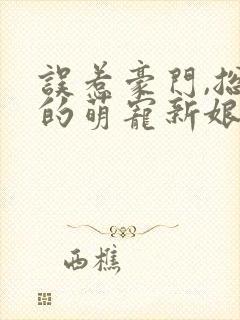 誤惹豪門,總
的萌寵新娘
西樵